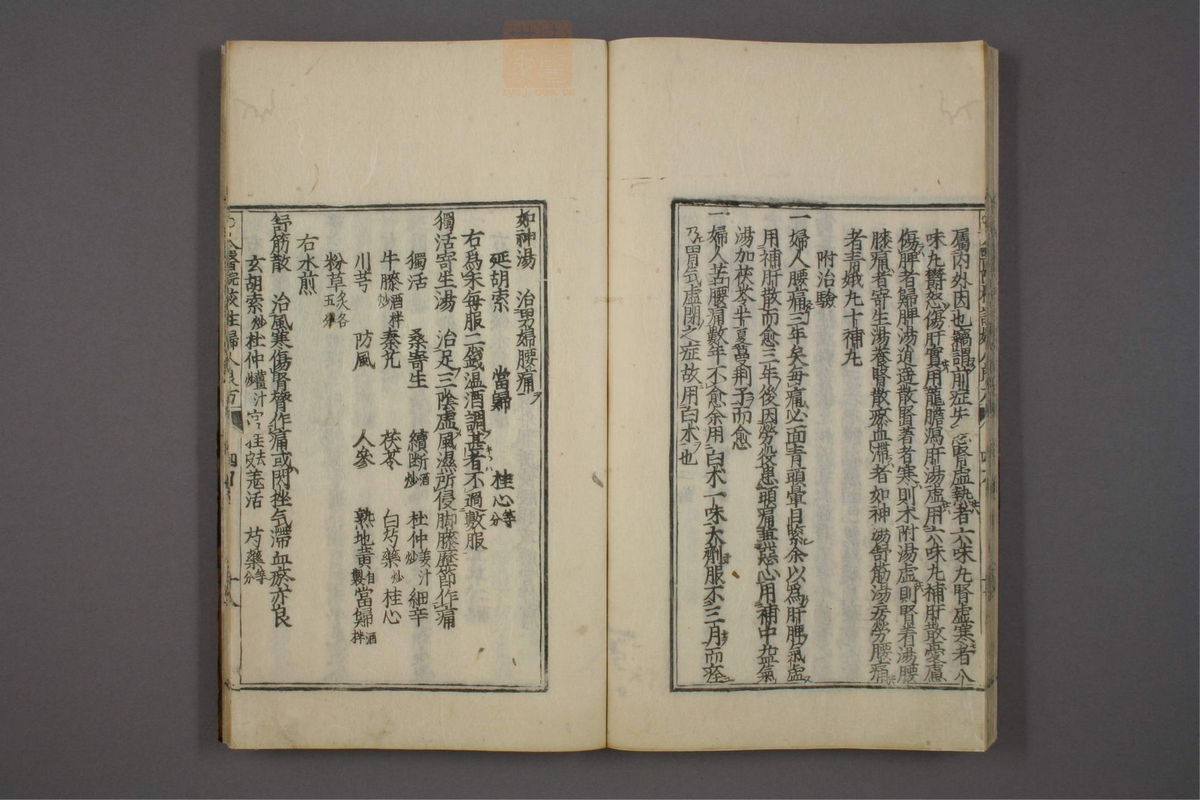 屬内外因也竊謂前症失心腎虛熱者六味丸腎虛寒者八
味丸鬱怒傷肝實用龍膽瀉肝湯虛用六味丸補肝散憂慮
傷脾者歸脾湯逍遥散腎著者寒則术附湯虛則腎着湯腰
膝痛者寄生湯養腎散瘀血滯者如神湯舒筋湯房勞腰痛
者青娥丸十補丸
附治驗
一婦人腰痛三年矣每痛必面青頭暈目緊余以爲肝脾氣虛
用補肝散而愈三年後因勞役患頭痛兼惡心用補中益氣
湯加茯苓半夏蔓荆子而愈
一婦人苦腰痛數年不愈余用白术一味大劑服不三月而痊
乃胃氣虛閉之症故用白术也
如神湯 治男婦腰痛
延胡索 當歸 桂心等分
右爲末每服二錢温酒調甚者不過數服
獨活寄生湯 治足三陰虛風濕所侵脚膝歷節作痛
獨活 桑寄生 續斷酒炒 杜仲姜汁炒 細辛
牛膝酒拌炒 秦艽 茯苓 白芍藥炒 桂心
川芎 防風 人參 熟地黄自製 當歸酒拌
粉草炙各五分
右水煎
舒筋散 治風寒傷腎膂作痛或閃挫气滯血瘀亦良
玄胡索炒 杜仲炒 官桂去皮 羌活 芍藥等分